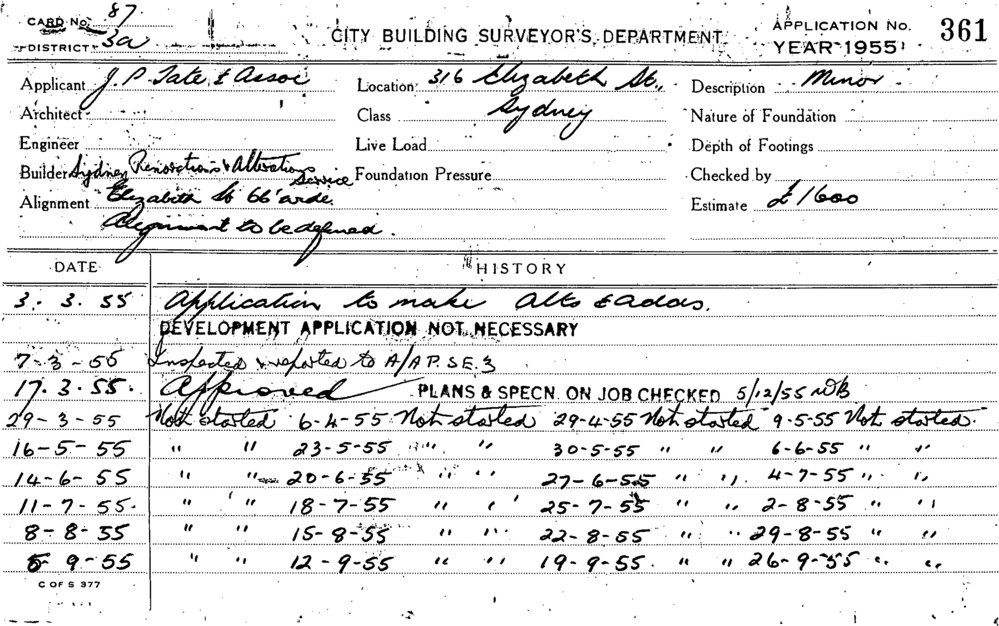 CARD No. 87.
DISTRICT 3a
CITY BUILDING SURVEYOR'S DEPARTMENT
APPLICATION No. 361
YEAR 1955
Applicant J. P. Tate & Assoc
Location 316 Elizabeth St.,
Description Minor
Architect
Class Sydney
Nature of Foundation
Engineer
Live Load
Depth of Footings
Builder Sydney Renovations & Alterations Service
Foundation Pressure
Checked by
Alignment Elizabeth St 66' wide.
Estimate £1600
Alignment to be defined.
DATE HISTORY
3. 3. 55 Application to make Alts & Adds.
DEVELOPMENT APPLICATION NOT NECESSARY
7-3-55 Inspected & reported to A/A P.S.E. 3
17.3.55. Approved PLANS & SPECN. ON JOB CHECKED 5/12/55
29-3-55 Not started 6-4-55 Not started 29-4-55 Not started 9-5-55 Not started.
16-5-55 " " 23-5-55 " " 30-5-55 " " 6-6-55 " "
14-6-55 " " 20-6-55 " " 27-6-55 " " 4-7-55 " "
11-7-55. " " 18-7-55 " " 25-7-55 " " 2-8-55 " "
8-8-55 " " 15-8-55 " " 22-8-55 " " 29-8-55 " "
5-9-55 " " 12-9-55 " " 19-9-55. " " 26-9-55 " "
C OF S 377